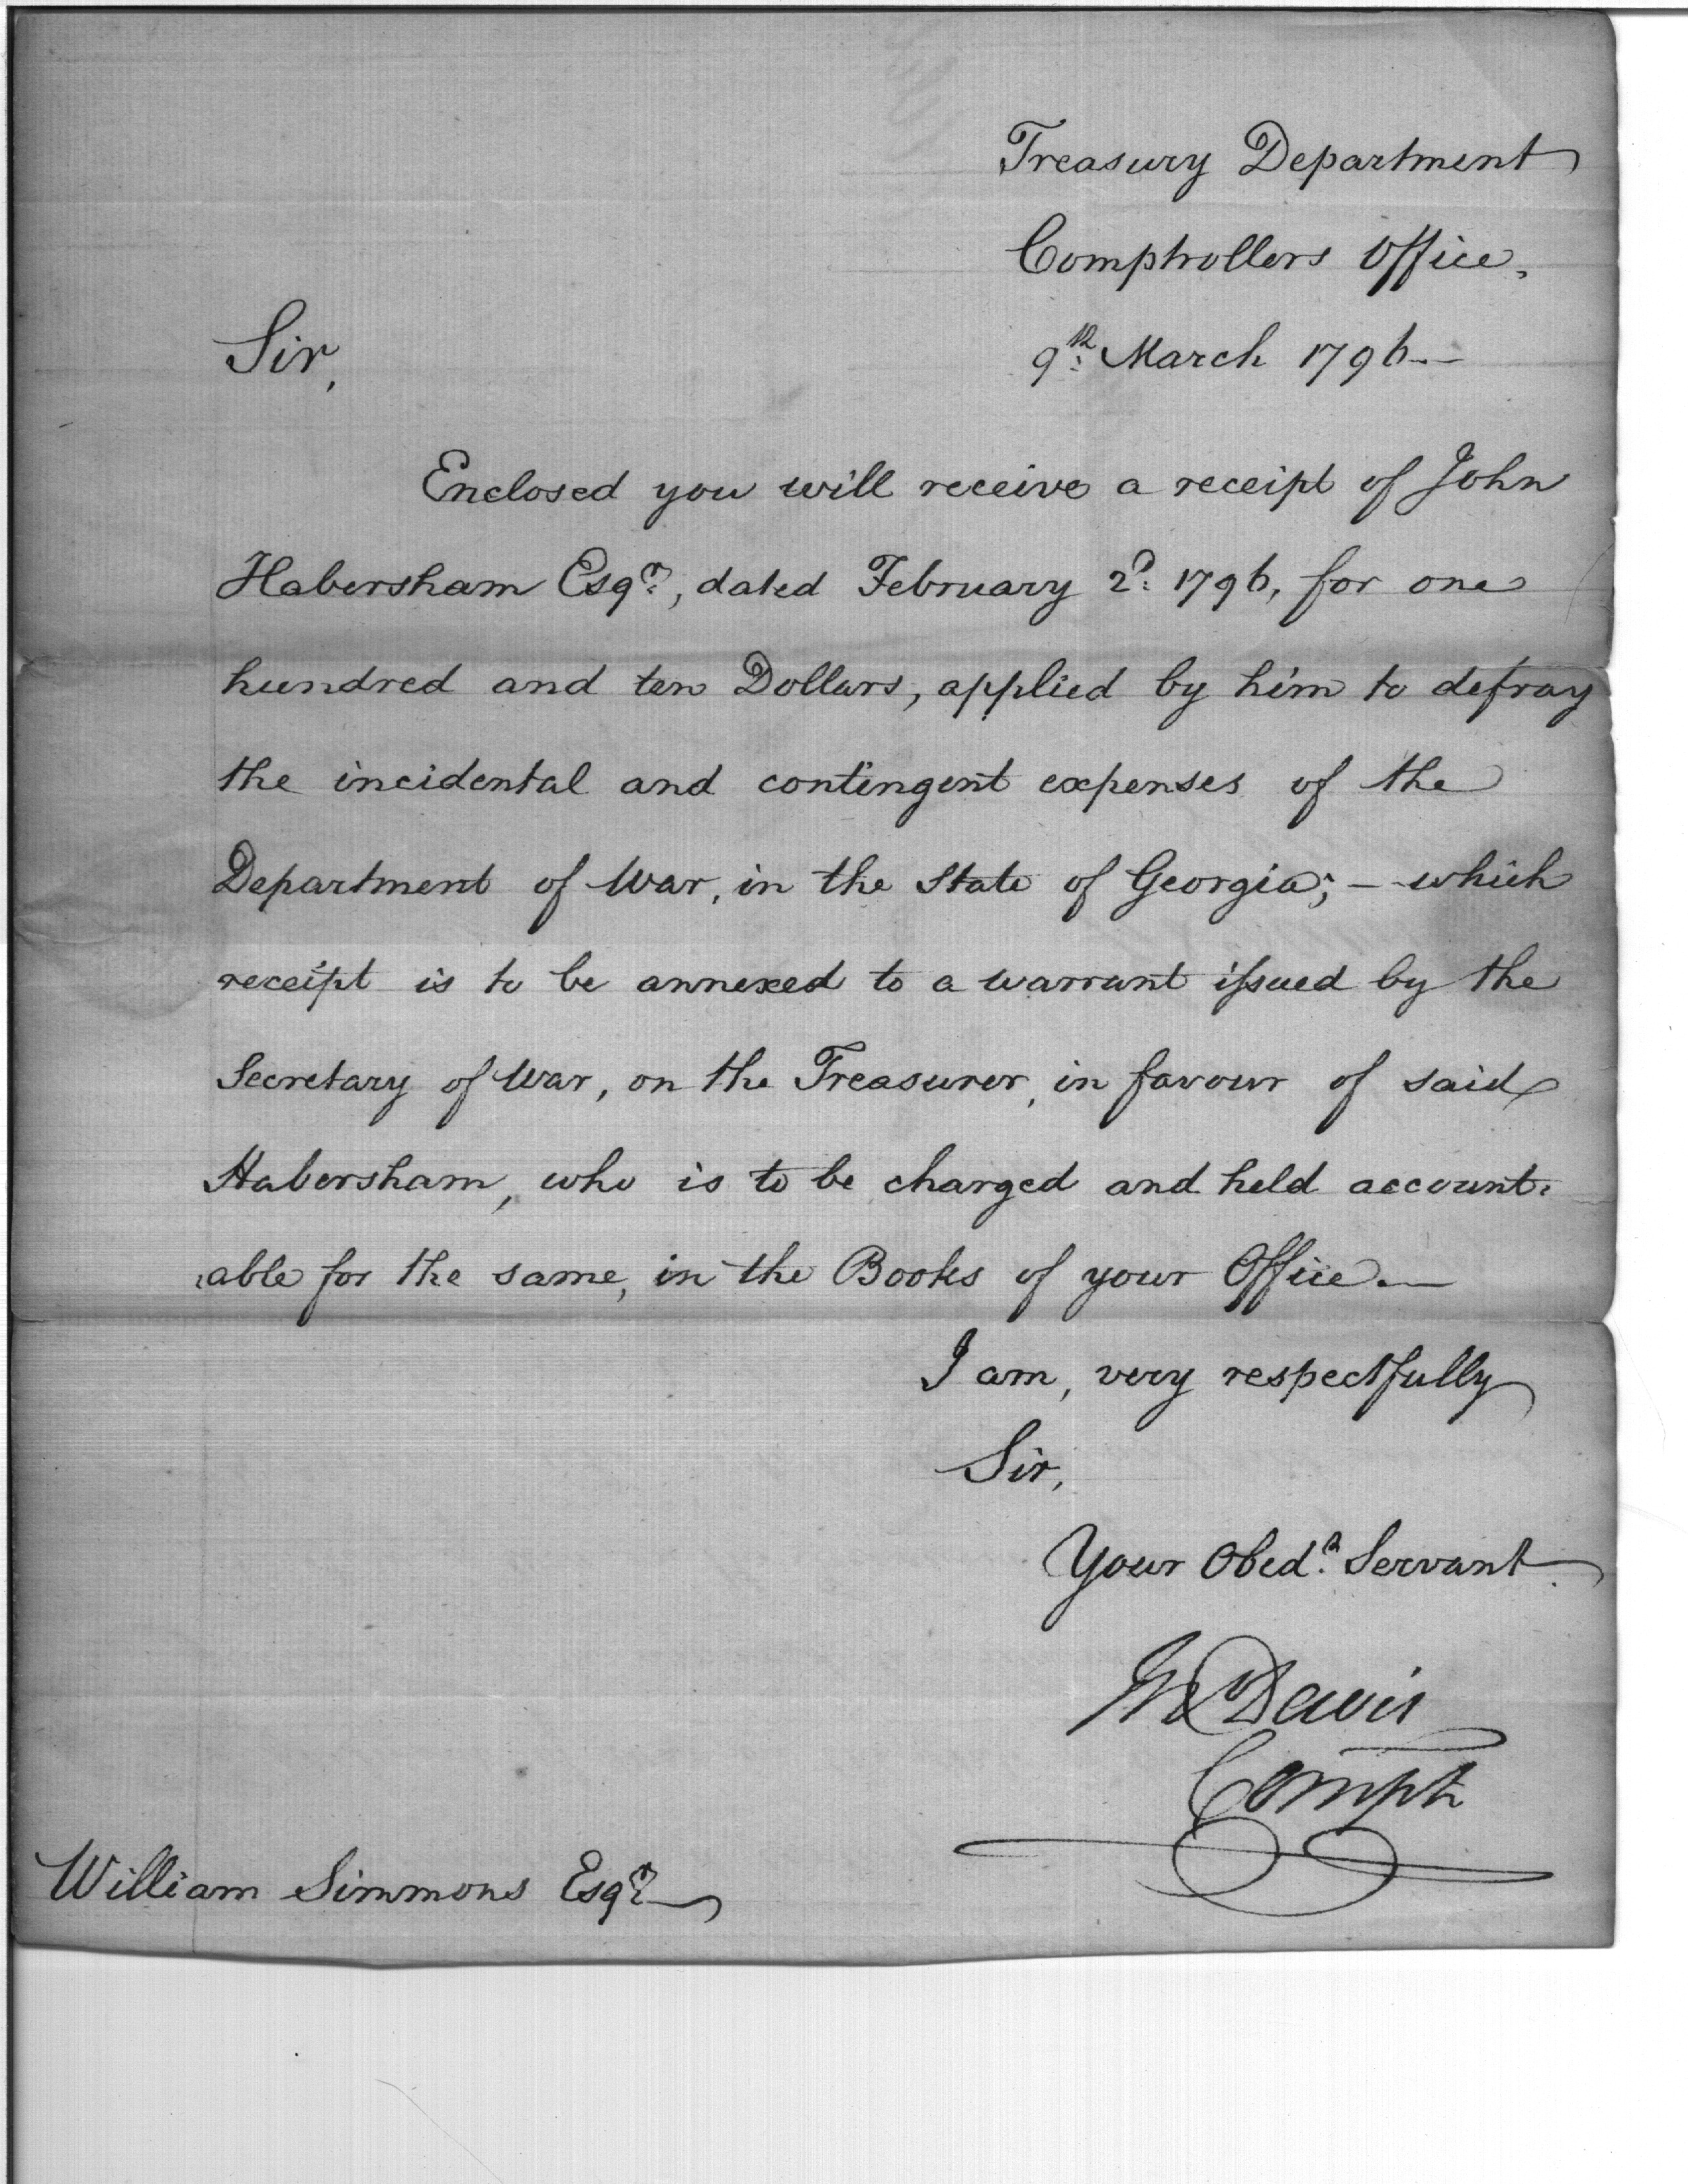 Treasury Department
Comptrollers Office,
9th: March 1796.—
Sir,
Enclosed you will receive a receipt of John
Habersham Esqr:, dated February 2d: 1796, for one
hundred and ten Dollars, applied by him to defray
the incidental and contingent expenses of the
Department of War, in the State of Georgia; – which
receipt is to be annexed to a warrant issued by the
Secretary of War, on the Treasurer, in favour of said
Habersham, who is to be charged and held account:
:able for the same, in the Books of your Office.—
I am, very respectfully
Sir,
Your Obedt. Servant
Jn Davis
Compt
William Simmons Esqr: